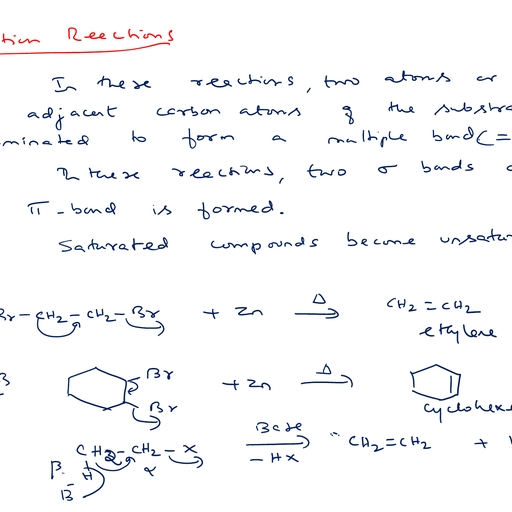 tion Reections
In these reactions, two atoms or
adjacent carbon atoms of the substra
minated to form a multiple bond (=
In these reactions, two σ bonds
π-bond is formed.
Saturated compounds become unsatur
Br-CH2-CH2-Br + Zn Δ CH2=CH2
ethylene
Br
Br + Zn Δ
cyclohexe
CH2-CH2-X Base -HX CH2=CH2 +
β H α
B-